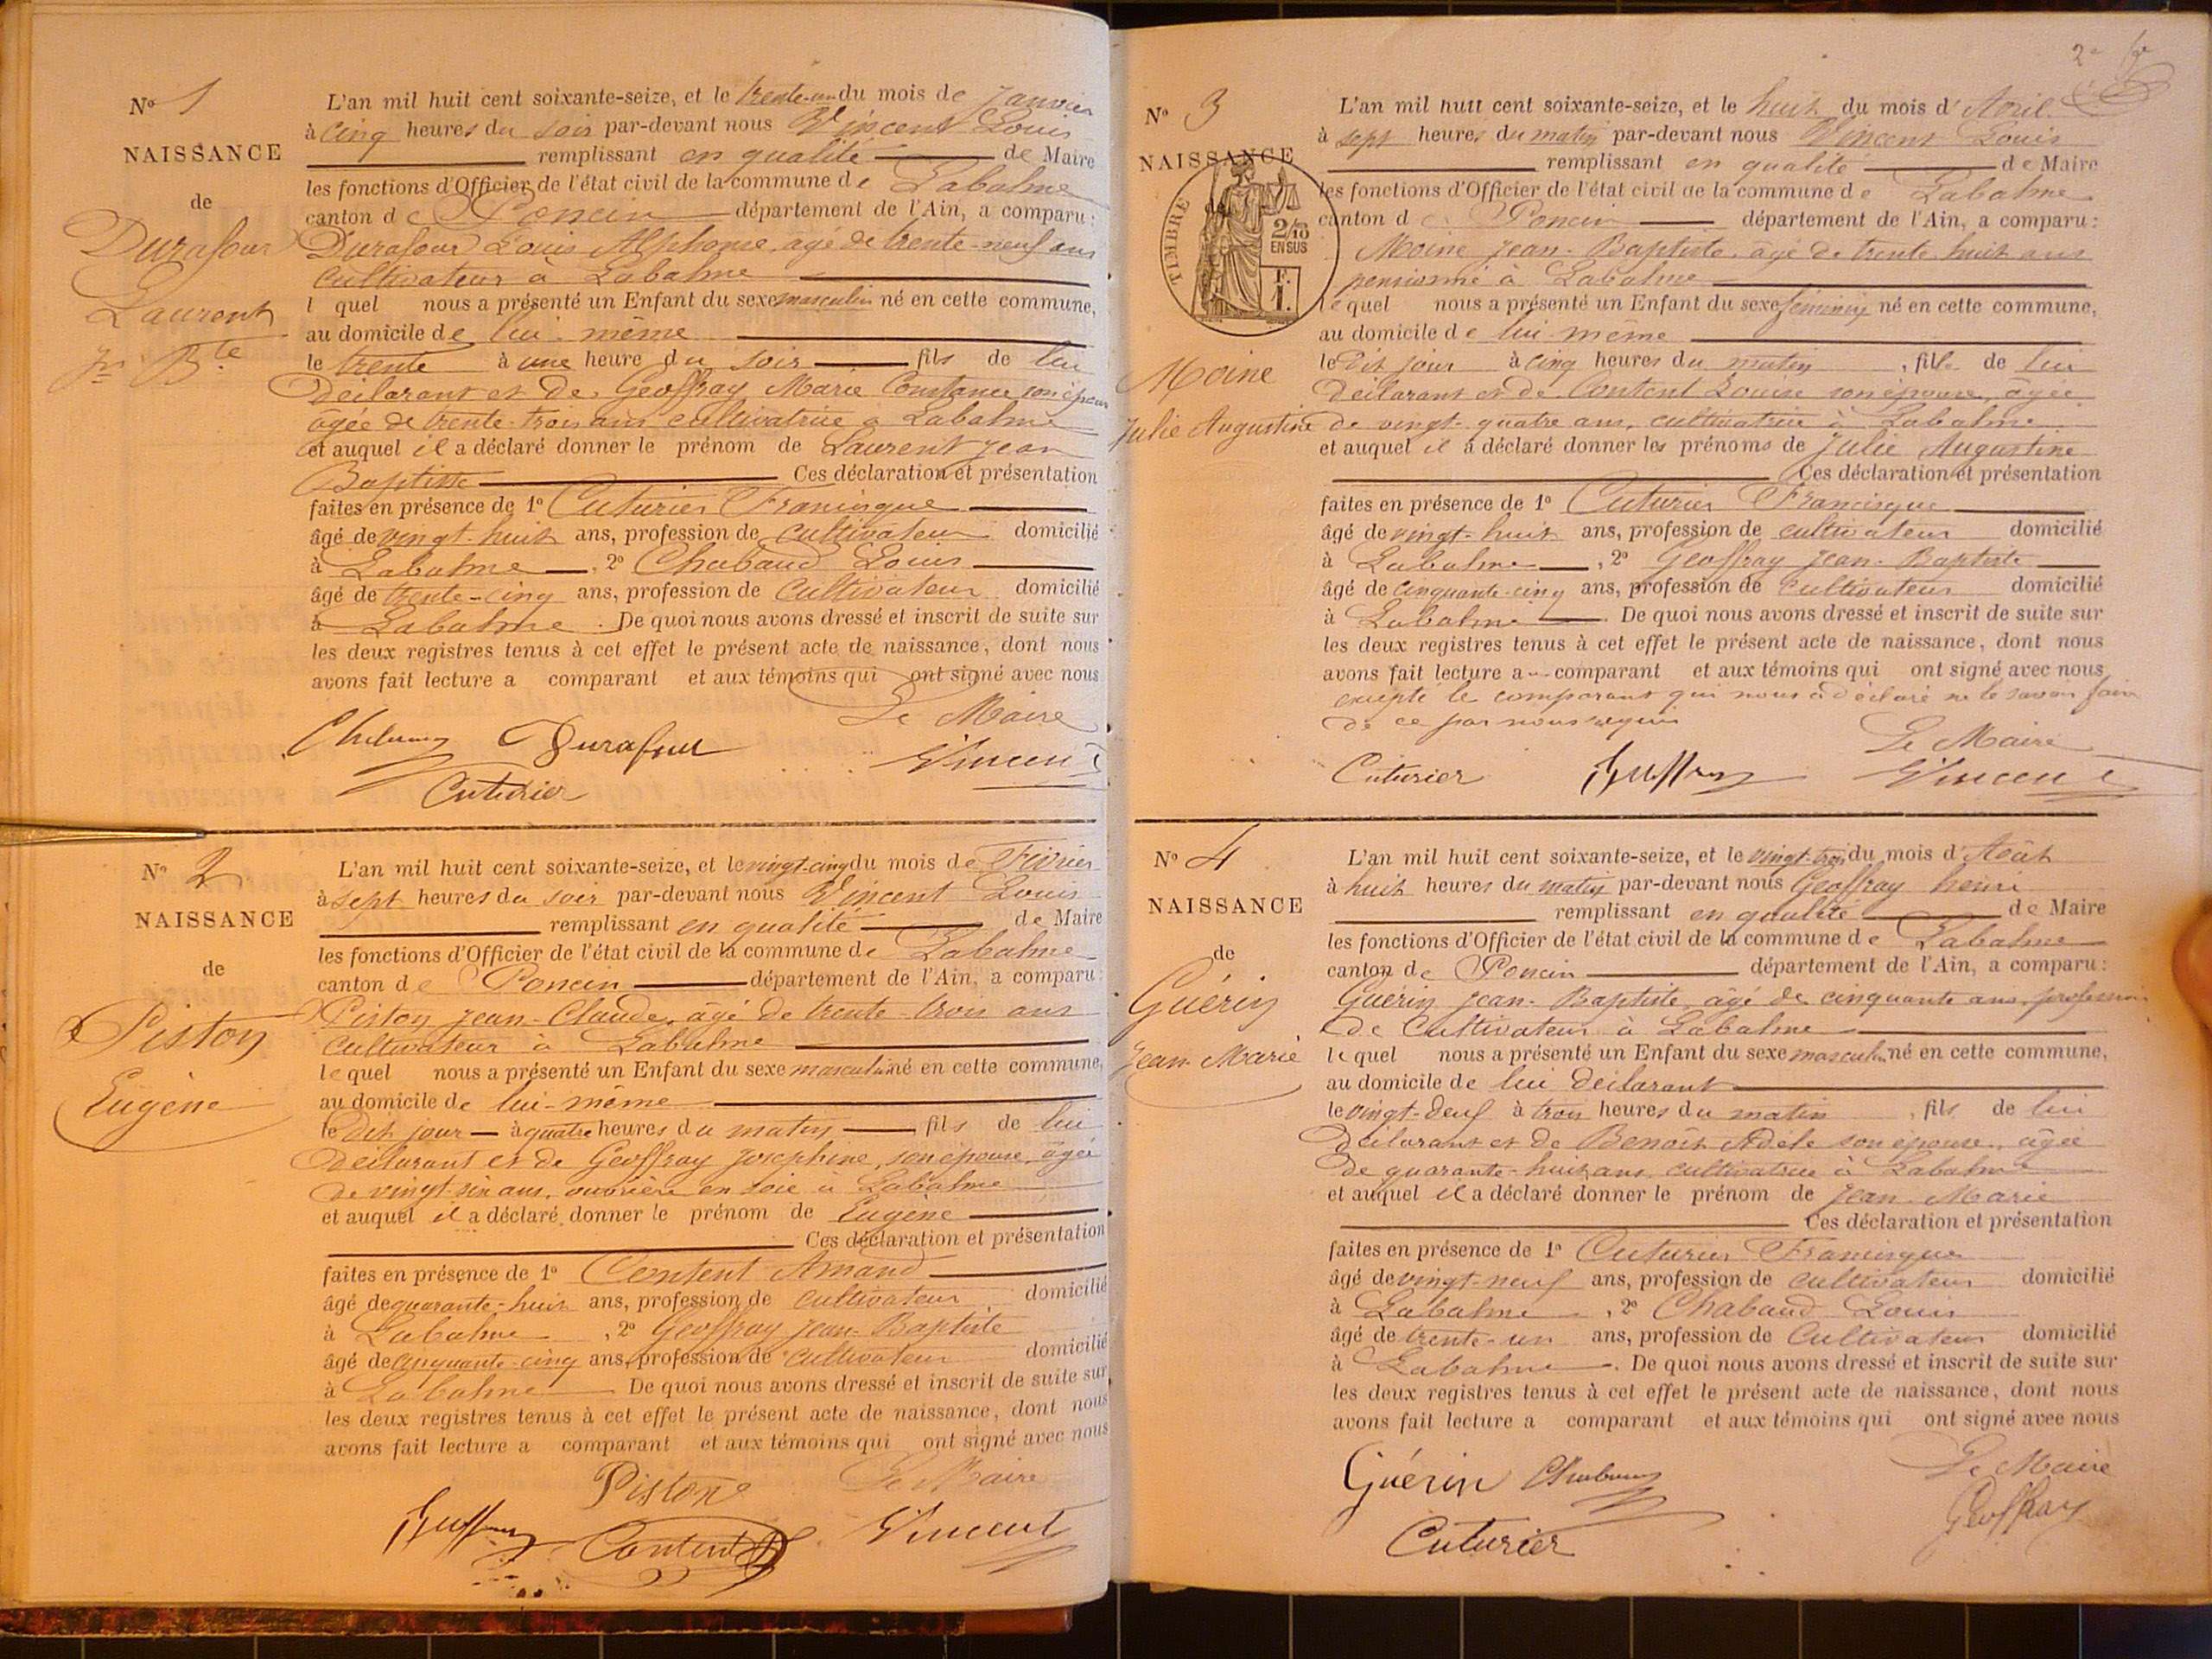 N° 1
NAISSANCE
de
Durafour
Laurent
Jn Bte
L'an mil huit cent soixante-seize, et le trente-un du mois de Janvier
à cinq heures du soir par-devant nous Vincent Louis
remplissant en qualité de Maire
les fonctions d'Officier de l'état civil de la commune de Labalme
canton de Poncin département de l'Ain, a comparu:
Durafour Louis Alphonse, âgé de trente-neuf ans
cultivateur à Labalme
l quel nous a présenté un Enfant du sexe masculin né en cette commune,
au domicile de lui même
le trente à une heure du soir fils de lui
déclarant et de Geoffray Marie Constance, son épouse
âgée de trente-trois ans cultivatrice à Labalme
et auquel il a déclaré donner le prénom de Laurent Jean
Baptiste Ces déclaration et présentation
faites en présence de 1° Cuturier Francisque
âgé de vingt-huit ans, profession de cultivateur domicilié
à Labalme, 2° Chabaud Louis
âgé de trente-cinq ans, profession de cultivateur domicilié
à Labalme. De quoi nous avons dressé et inscrit de suite sur
les deux registres tenus à cet effet le présent acte de naissance, dont nous
avons fait lecture a comparant et aux témoins qui ont signé avec nous
Le Maire
Durafour Vincent
Cuturier
N° 2
NAISSANCE
de
Piston
Eugène
L'an mil huit cent soixante-seize, et le vingt-cinq du mois de Février
à sept heures du soir par-devant nous Vincent Louis
remplissant en qualité de Maire
les fonctions d'Officier de l'état civil de la commune de Labalme
canton de Poncin département de l'Ain, a comparu:
Piston Jean-Claude, âgé de trente-trois ans
cultivateur à Labalme
lequel nous a présenté un Enfant du sexe masculin né en cette commune,
au domicile de lui-même
le dit jour à quatre heures du matin, fils de lui
déclarant et de Geoffray Josephine, son épouse, âgée
de vingt-six ans, ouvrière en soie à Labalme
et auquel il a déclaré donner le prénom de Eugène
Ces déclaration et présentation
faites en présence de 1° Content Amand
âgé de quarante-huit ans, profession de cultivateur domicilié
à Labalme, 2° Geoffray Jean-Baptiste
âgé de cinquante-cinq ans, profession de cultivateur domicilié
à Labalme De quoi nous avons dressé et inscrit de suite sur
les deux registres tenus à cet effet le présent acte de naissance, dont nous
avons fait lecture a comparant et aux témoins qui ont signé avec nous
Piston Le Maire
Content Vincent
2e
N° 3
NAISSANCE
de
TIMBRE
2/10
EN SUS
F.
1.
Moine
Julie Augustine
L'an mil huit cent soixante-seize, et le huit du mois d'Avril
à sept heures du matin par-devant nous Vincent Louis
remplissant en qualité de Maire
les fonctions d'Officier de l'état civil de la commune de Labalme
canton de Poncin département de l'Ain, a comparu:
Moine Jean-Baptiste, âgé de trente huit ans
pensionné à Labalme
lequel nous a présenté un Enfant du sexe féminin né en cette commune,
au domicile de lui-même
le dit jour à cinq heures du matin, fille de lui
déclarant et de Content Louise son épouse, âgée
de vingt-quatre ans, cultivatrice à Labalme
et auquel il a déclaré donner les prénoms de Julie Augustine
Ces déclaration et présentation
faites en présence de 1° Cuturier Francisque
âgé de vingt-huit ans, profession de cultivateur domicilié
à Labalme, 2° Geoffray Jean-Baptiste
âgé de cinquante-cinq ans, profession de cultivateur domicilié
à Labalme. De quoi nous avons dressé et inscrit de suite sur
les deux registres tenus à cet effet le présent acte de naissance, dont nous
avons fait lecture au comparant et aux témoins qui ont signé avec nous
excepté le comparant qui nous a déclaré ne le savoir faire
de ce par nous requis
Le Maire
Cuturier Vincent
N° 4
NAISSANCE
de
Guérin
Jean-Marie
L'an mil huit cent soixante-seize, et le vingt-trois du mois d'Août
à huit heures du matin par-devant nous Geoffray henri
remplissant en qualité de Maire
les fonctions d'Officier de l'état civil de la commune de Labalme
canton de Poncin département de l'Ain, a comparu:
Guérin Jean-Baptiste, âgé de cinquante ans, profession
de cultivateur à Labalme
lequel nous a présenté un Enfant du sexe masculin né en cette commune,
au domicile de lui déclarant
le vingt-deux à trois heures du matin, fils de lui
déclarant et de Benoît Adèle son épouse, âgée
de quarante-huit ans, cultivatrice à Labalme
et auquel il a déclaré donner le prénom de Jean-Marie
Ces déclaration et présentation
faites en présence de 1° Cuturier Francisque
âgé de vingt-neuf ans, profession de cultivateur domicilié
à Labalme, 2° Chabaud Louis
âgé de trente-un ans, profession de Cultivateur domicilié
à Labalme. De quoi nous avons dressé et inscrit de suite sur
les deux registres tenus à cet effet le présent acte de naissance, dont nous
avons fait lecture a comparant et aux témoins qui ont signé avec nous
Guérin Le Maire
Geoffray
Cuturier